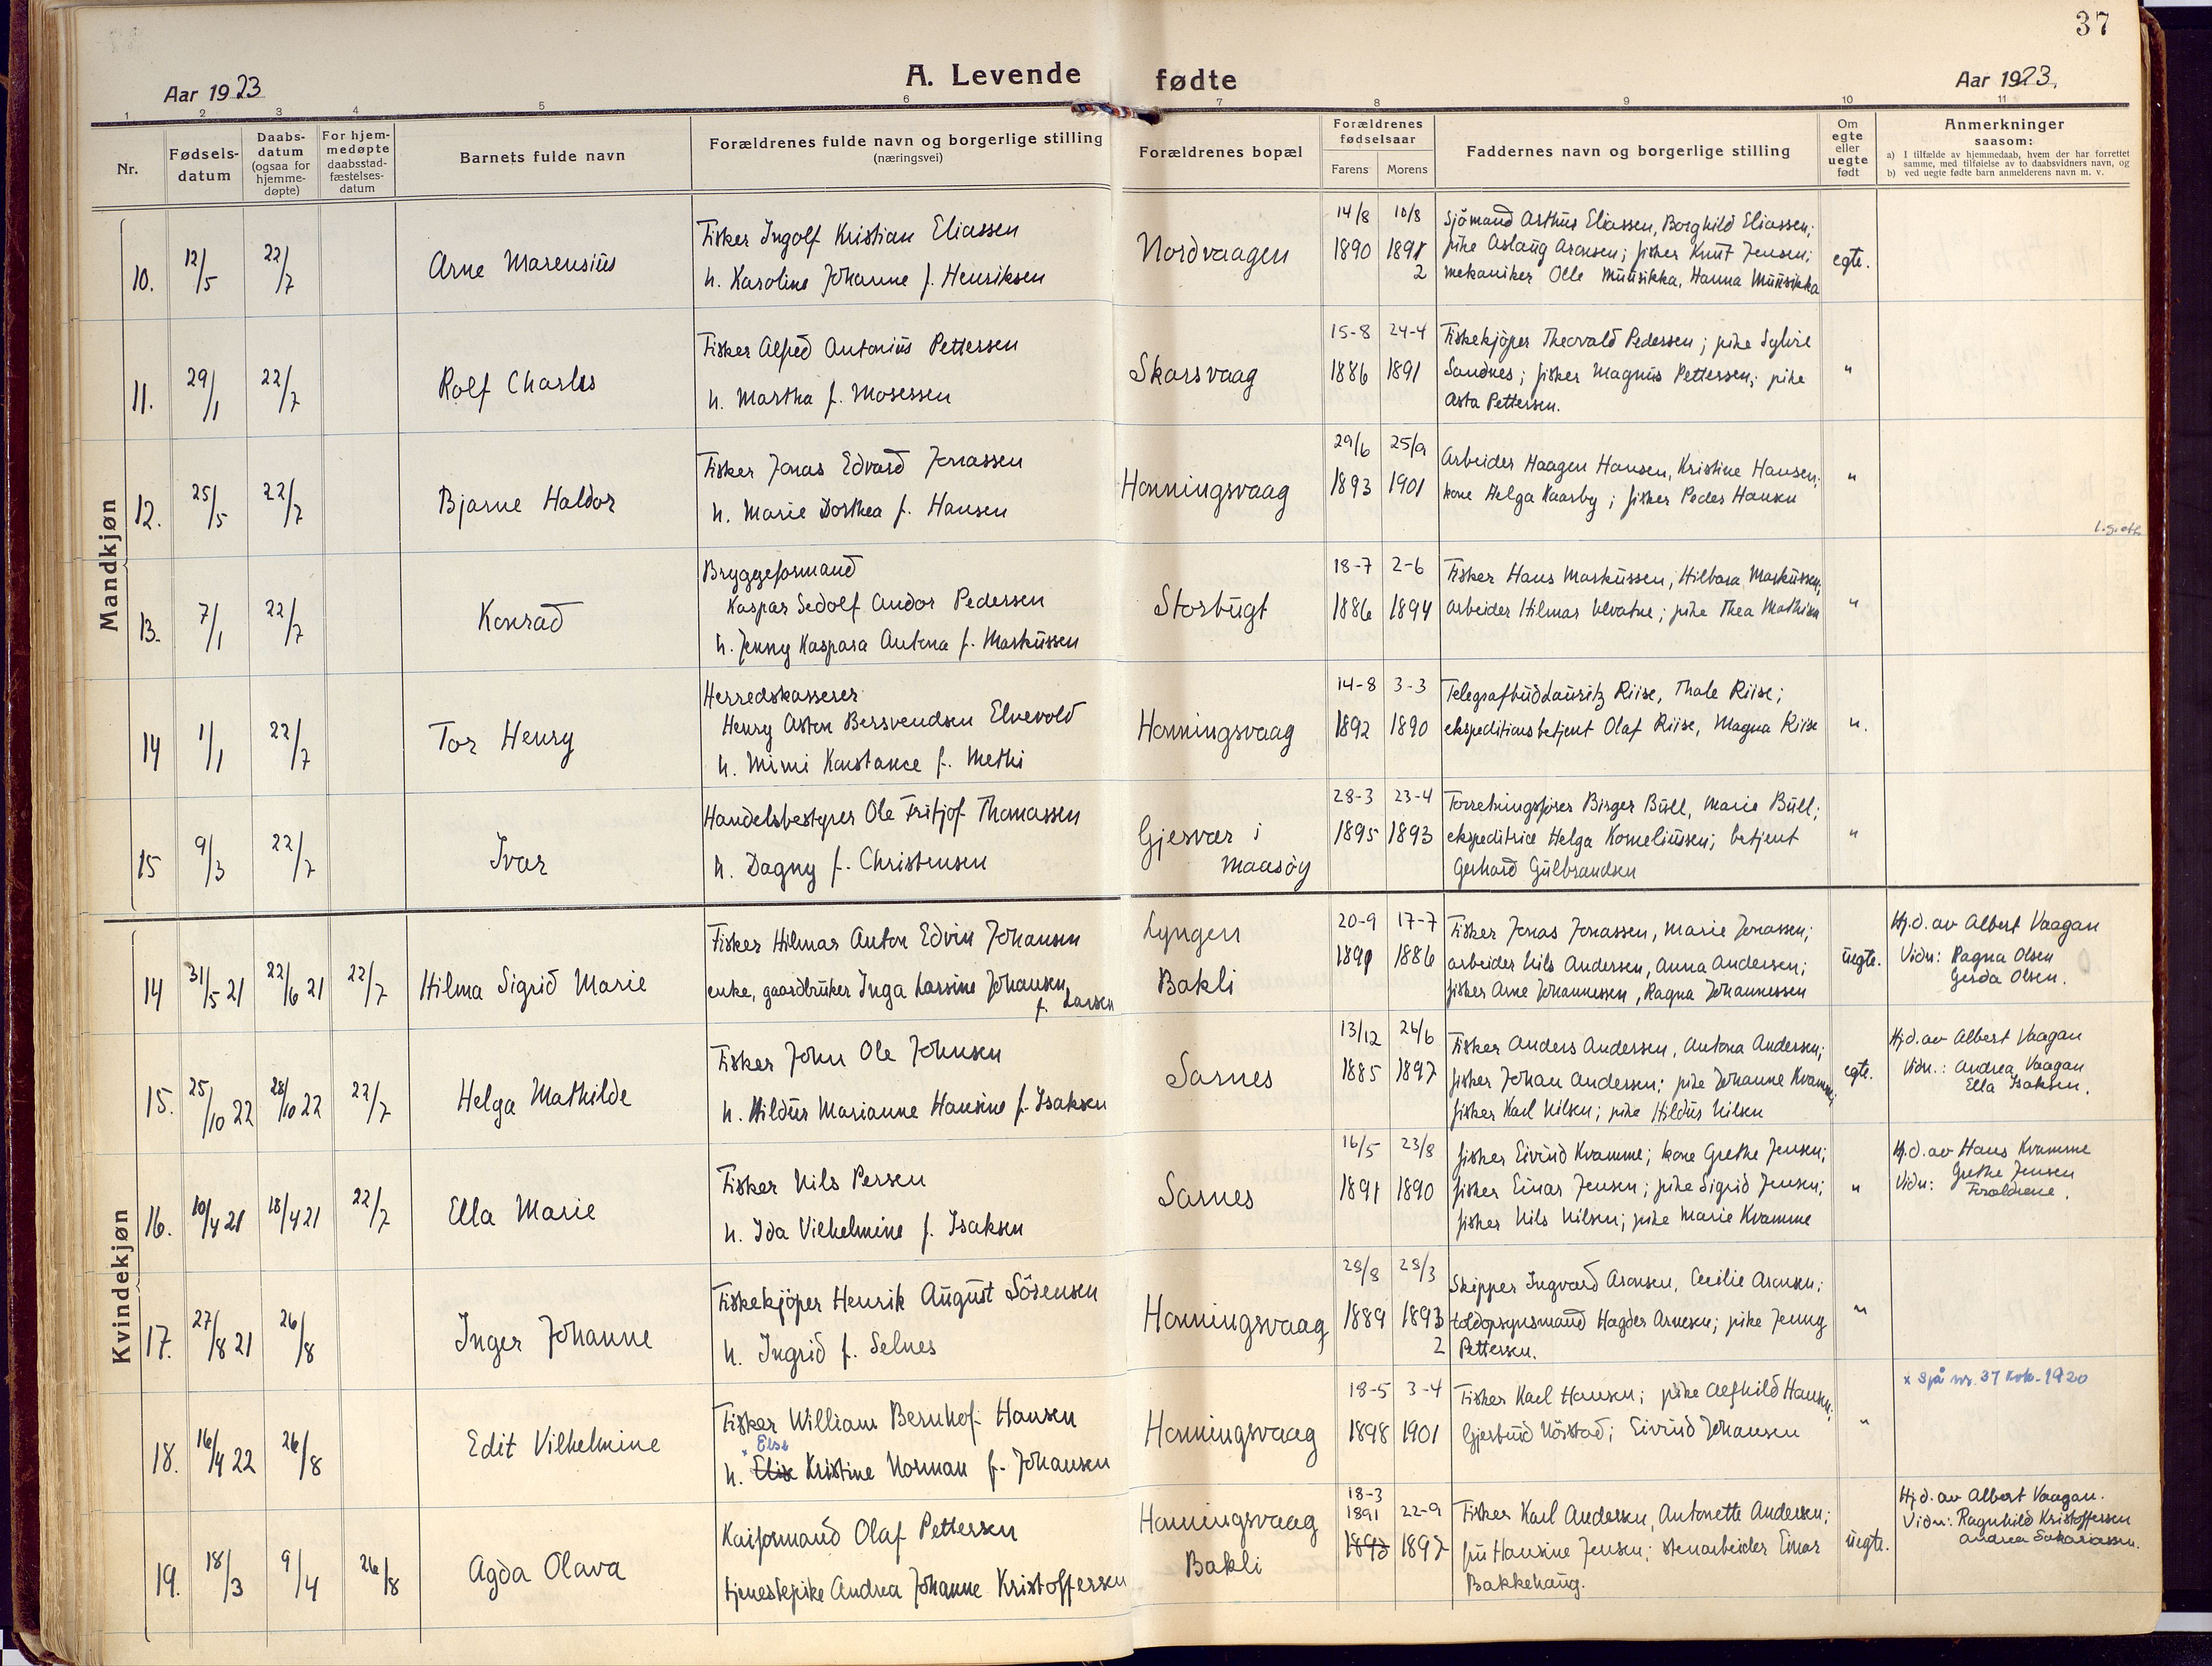 37
Aar 1923
A. Levende fødte
Aar 1923.
1 2 3 4 5 6 7 8 9 10 11
Nr.
Fødsels-
datum
Daabs-
datum
(ogsaa for
hjemme-
døpte)
For hjem-
medøpte
daabsstad-
fæstelses-
datum
Barnets fulde navn
Forældrenes fulde navn og borgerlige stilling
(næringsvei)
Forældrenes bopæl
Forældrenes
fødselsaar
Farens Morens
Faddernes navn og borgerlige stilling
Om
egte
eller
uegte
født
Anmerkninger
saasom:
a) I tilfælde av hjemmedaab, hvem der har forrettet
samme, med tilføielse av to daabsvidners navn, og
b) ved uegte fødte barn anmelderens navn m. v.
Mandkjøn
10. 12/5 22/7 Arne Marensius
Fisker Ingolf Kristian Eliassen
h. Karoline Johanne f. Henriksen
Nordvaagen
14/8 1890
10/8 1891
2
Sjömand Arthur Eliassen, Borghild Eliassen;
pike Aslaug Aronsen; fisker Knut Jensen;
mekaniker Olle Muusikka, Hanna Muusikka
egte.
11. 29/1 22/7 Rolf Charles
Fisker Alfred Antonius Pettersen
h. Martha f. Mosessen
Skarsvaag
15-8 1886
24-4 1891
Fiskekjöper Theovald Pedersen; pike Sylvie
Sandnes; fisker Magnus Pettersen; pike
Asta Pettersen.
"
12. 25/5 22/7 Bjarne Haldor
Fisker Jonas Edvard Jonassen
h. Marie Dorthea f. Hansen
Honningsvaag
29/6 1893
25/9 1901
Arbeider Haagen Hansen, Kristine Hansen;
kone Helga Kaarby; fisker Peder Hansen
"
13. 7/1 22/7 Konrad
Bryggeformand
Kaspar Sedolf Andor Pedersen
h. Jenny Kaspara Antona f. Markussen
Storbugt
18-7 1886
2-6 1894
Fisker Hans Markussen, Hilbora Markussen,
arbeider Hilmar Ulvatne; pike Thea Mathisen
"
14 1/1 22/7 Tor Henry
Herredskasserer
Henry Aston Bersvendsen Elvevold
h. Mimi Konstance f. Methi
Honningsvaag
14-8 1892
3-3 1890
Telegrafbud Lauritz Riise, Thale Riise;
ekspeditionsbetjent Olaf Riise, Magna Riise
".
15 9/3 22/7 Ivar
Handelsbestyrer Ole Fritjof Thomassen
h. Dagny f. Christensen
Gjesvær i
Maasöy
28-3 1895
23-4 1893
Forretningsförer Birger Bull, Marie Bull;
ekspeditrice Helga Korneliussen; betjent
Gerhard Gulbrandsen
"
Kvindekjøn
14 31/5 21 22/6 21 22/7 Hilma Sigrid Marie
Fisker Hilmar Anton Edvin Johansen
enke, gaardbruker Inga Larsine Johansen,
f. Larsen
Lyngen
Bakli
20-9 1891
17-7 1886
Fisker Jonas Jonassen, Marie Jonassen;
arbeider Nils Andersen, Anna Andersen;
fisker Arne Johannessen, Ragna Johannessen
uegte.
Hj.d. av Albert Vaagan
Vidn: Ragna Olsen
Gerda Olsen.
15. 25/10 22 28/10 22 22/7 Helga Mathilde
Fisker John Ole Johnsen
h. Hildur Marianne Hansine f. Isaksen
Sarnes
13/12 1885
26/6 1897
Fisker Anders Andersen, Antona Andersen;
fisker Johan Andersen; pike Johanne Kvamme;
fisker Karl Nilsen; pike Hildur Nilsen
egte.
Hj.d. av Albert Vaagan
Vidn.: Andrea Vaagan
Ella Isaksen.
16. 10/4 21 18/4 21 22/7 Ella Marie
Fisker Nils Persen
h. Ida Vilhelmine f. Isaksen
Sarnes
16/5 1891
23/8 1890
fisker Eivind Kvamme; kone Grethe Jensen;
fisker Einar Jensen; pike Sigrid Jensen;
fisker Nils Nilsen; pike Marie Kvamme
"
Hj.d. av Hans Kvamme
Vidn: Grethe Jensen
Foreldrene.
17. 27/8 21 26/8 Inger Johanne
Fiskekjöper Henrik August Sörensen
h. Ingrid f. Selnes
Honningsvaag
28/8 1889
28/3 1893
2
Skipper Ingvard Aronsen, Cecilie Aronsen;
toldopsynsmand Hagder Arnesen; pike Jenny
Pettersen.
"
18. 16/4 22 26/8 Edit Vilhelmine
Fisker William Bernhof Hansen
x Else
h. Elise Kristine Norman f. Johansen
Honningsvaag
18-5 1898
3-4 1901
Fisker Karl Hansen; pike Alfhild Hansen;
Gjertrud Nöstad; Eivind Johansen
"
x Sjå nr. 37 kvk. 1920
19. 18/3 9/4 26/8 Agda Olava
Kaiformand Olaf Pettersen
tjenestepike Andrea Johanne Kristoffersen
Honningsvaag
Bakli
18-3
1891
1893
22-9 1897
Fisker Karl Andersen, Antonette Andersen;
fru Hansine Jensen; stenarbeider Einar
Bakkehaug.
uegte.
Hj.d. av Albert Vaagan.
Vidn: Ragnhild Kristoffersen
Andrea Sakariassen.